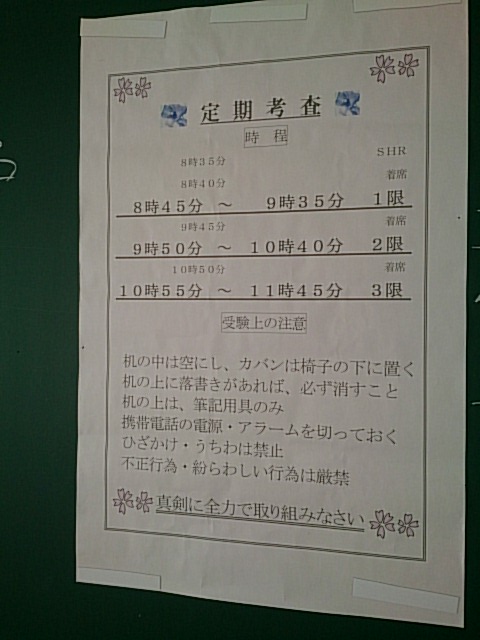 定期考査
時程
8時35分 SHR
8時40分 着席
8時45分 ～ 9時35分 1限
9時45分 着席
9時50分 ～ 10時40分 2限
10時50分 着席
10時55分 ～ 11時45分 3限
受験上の注意
机の中は空にし、カバンは椅子の下に置く
机の上に落書きがあれば、必ず消すこと
机の上は、筆記用具のみ
携帯電話の電源・アラームを切っておく
ひざかけ・うちわは禁止
不正行為・紛らわしい行為は厳禁
真剣に全力で取り組みなさい